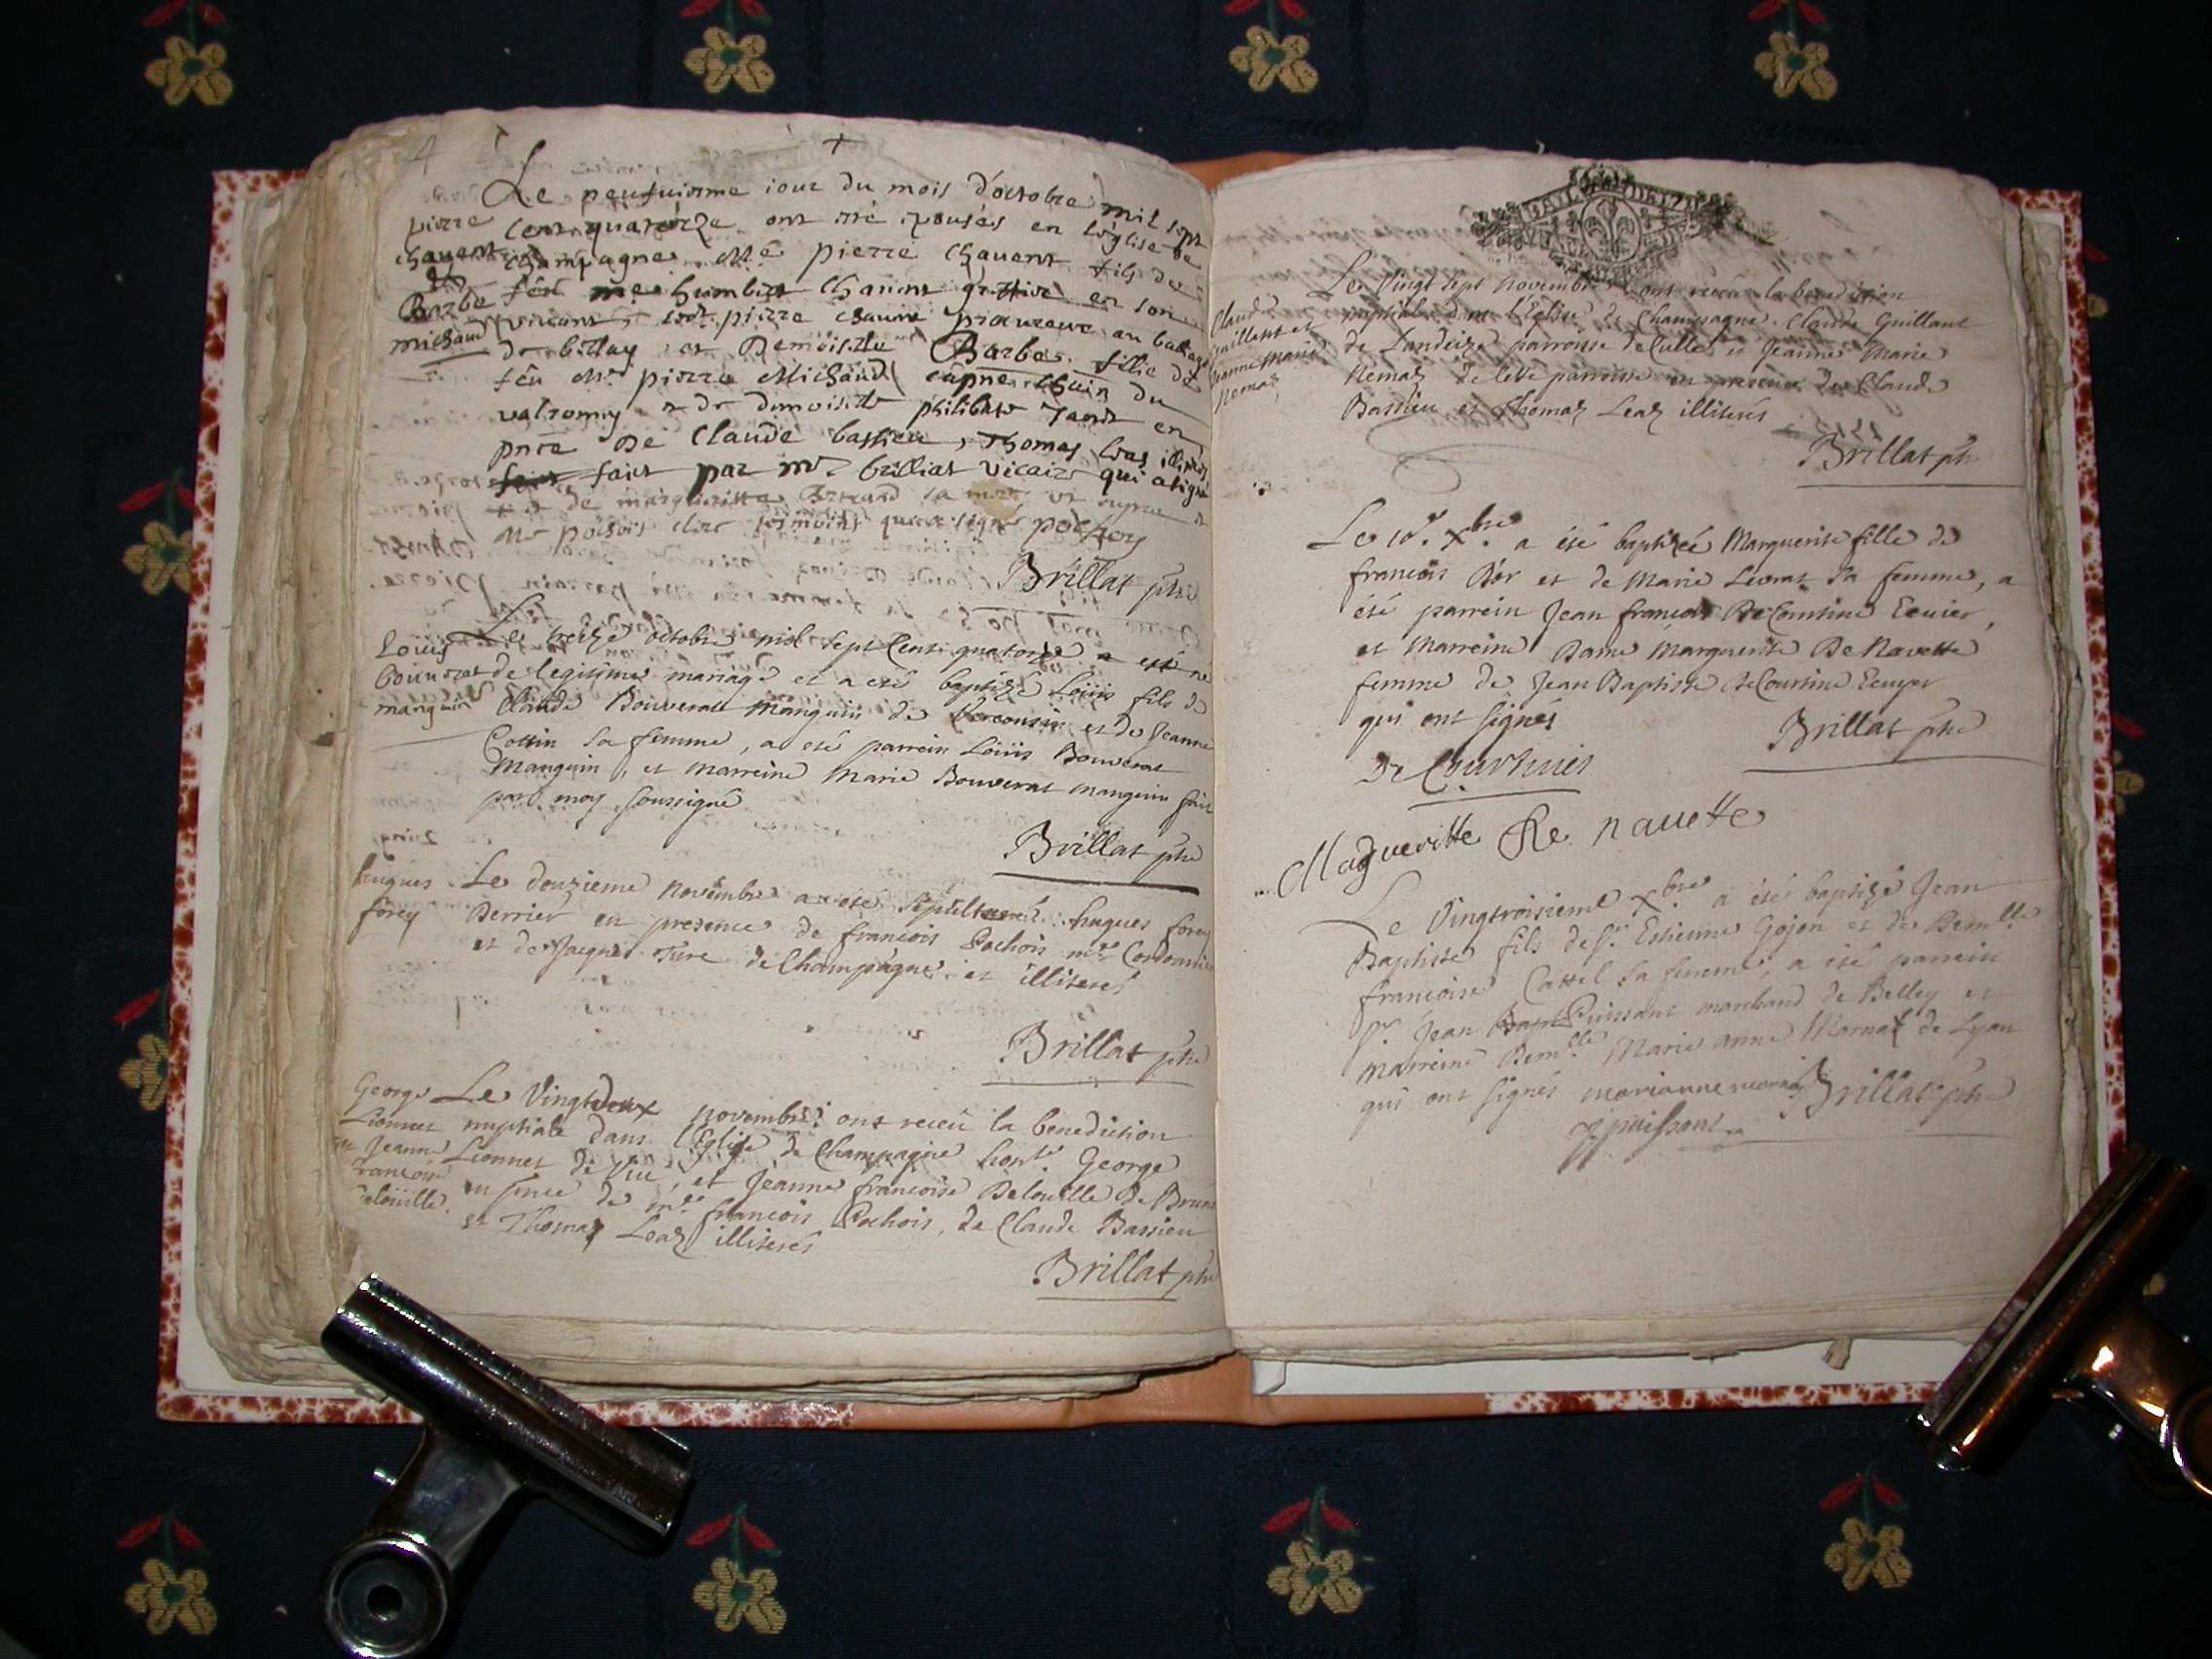 4
Le neufuieme iour du mois d'octobre mil sept
cent quatorze ont été epousés en l'église de
champagne Me pierre chauent fils de
feu me humbert Chauent greffier en son
viuant, pierre procureur au bailliage
de bellay et Demoiselle Barbe fille de
feu Mr pierre Michaud du
valromey et de demoiselle philiberte en
pnce De Claude bassieu, Thomas leas illiterés
fait par mr brillat vicaire qui a signé
de margueritte Bertrand sa
Brillat ptre
pierre
chauent
et
Barbe
michaud
Le treize octobre mil sept cent quatorze a esté né
de legitime mariage et a eté baptizé Loüis fils de
Claude Bouverat Manguin de et de Jeanne
Cottin sa femme, a eté parrein Loüis Bouverat
Manguin, et marreine Marie Bouverat manguin fait
par moy soussigné
Brillat ptre
Louis
Bouuerat
manguin
Le douzieme novembre a eté sepulturé hugues forey
Derrier en presence de francois Pochois mre Cordonnier
et de Jaques de Champagne et illiterés
Brillat ptre
hugues
forey
Le Vingtdeux novembre ont receu la benediction
nuptiale dans l'Eglise de Champagne honle George
Lionnet de Viu, et Jeanne francoise Delouille De
en pnce de me francois Pochois, de Claude Bassieu
et Thomas Leaz illiterés
Brillat ptre
George
Lionnet
Jeanne
francoise
delouille.
Le Vingt sept novembre ont receu la benediction
nuptiale dans l'Eglise de Champagne. Claude Guillant
de Landeize parroisse de Culle et Jeanne Marie
Nemaz de cette parroisse en presence de Claude
Bassieu et Thomas Leaz illiterés
Brillat ptre
Claude
Guillant et
Jeanne Marie
Nemaz
Le 10e xbre a eté baptizée Marguerite fille de
francois Bor et de Marie Leurat sa femme, a
été parrein Jean francois DeCourtine Ecuier,
et Marreine Dame Marguerite De Navette
femme de Jean Baptiste deCourtine Ecuyer
qui ont signés
Brillat ptre
De Courtines
Magueritte De nauette
Le Vingtroisieme xbre a été baptizé Jean
Baptiste fils de sr Estienne Gojon et de Demlle
francoise Cattel sa femme, a été parrein
sr Jean Bapt Puissant marchand de Belley et
marreine Demlle Marie anne Mornaz de Lyon
qui ont signés marianne mornas Brillat ptre
puissant